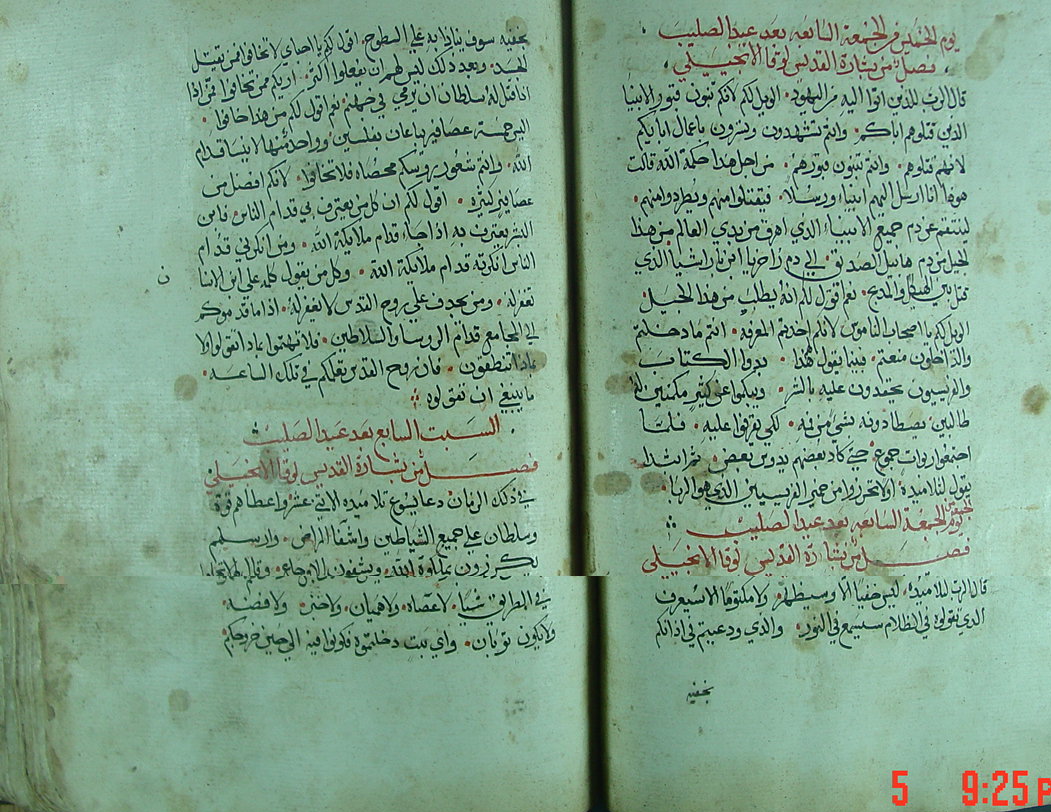 يوم الخميس في الجمعة السابعه بعد عيد الصليب
فصل من بشارة القديس لوقا الانجيلي
قال الرب للذين اتوا اليه من اليهود الويل لكم لانكم تبنون قبور الانبيا
الذين قتلوهم اباكم وانتم تشهدون وتسرون باعمال ابايكم
لانهم قتلوهم وانتم تبنون قبورهم من اجل هذا حكمة الله قالت
هوذا انا ارسل اليهم انبياء ورسلا فيقتلوا منهم ويطردوا منهم
لينتقم عن دم جميع الانبياء الذي اهرق من بدي العالم من هذا
الجيل من دم هابيل الصديق الي دم زاخريا ابن باراشيا الذي
قتل بين الهيكل والمدبح نعم اقول لكم انه يطلب من هذا الجيل
الويل لكم يا اصحاب الناموس لانكم اخذتم المعرفه انتم ما دخلتم
والداخلون منعتم فبينما يقول هذا بدوا الكتاب
والفريسيون يحقدون عليه بالشر كثير
طالبين يصطادونه بشي من فمه لكي يقرفوا عليه فلما
اجتمعوا ربوات جموع حتي كاد بعضهم يدوس بعض ثم ابتدا
يقول لتلاميده اولا تحرزوا من خمير الفريسيين الذي هو الريا
يوم الجمعة السابعه بعد عيد الصليب
فصل من بشارة القديس لوقا الانجيلي
قال الرب لتلاميده ليس خفيا الا وسيظهر ولا مكتوما الا سيعرف
الذي تقولوه في الظلام سيسمع في النور والذي ودعيتم في اذانكم
بخفيه
بخفيه سوف ينادا به علي السطوح اقول لكم يا احباي لا تخافوا ممن يقتل
الجسد وبعد ذلك ليس لهم ان يفعلوا اكثر اريكم ممن تخافوا ممن اذا
اذا قتل له سلطان ان يرمي في جهنم نعم اقول لكم من هذا خافوا
اليس خمسة عصافير يباعان بفلسين وواحد منها لا ينسا قدام
الله وانتم شعور روسكم محصاه فلا تخافوا لانكم افضل من
عصافير كثيرة اقول لكم ان كل من يعترف بي قدام الناس فابن
البشر يعترف به اذا جاء قدام ملايكة الله ومن انكرني قدام
الناس انكرته قدام ملايكة الله وكل من يقول كلمه علي ابن الانسا
ن
تغفر له ومن يجدف علي روح القدس لا تغفر له اذا ما قدموكم
الي المجامع قدام الروسا والسلاطين فلا تهتموا بماذا تقولوا او
بماذا تنطقون فان روح القدس يعلمكم في تلك الساعه
ما ينبغي ان تقولوه
السبت السابع بعد عيد الصليب
فصل من بشارة القديس لوقا الانجيلي
في ذلك الزمان دعا يسوع تلاميده الاثني عشر واعطاهم قوة
وسلطان علي جميع الشياطين واشفا المراض وارسلهم
يكرزون بملكوة الله ويشفون الاوجاع وقال لهم لا تحملوا
في الطرايق شيا لا عصاه ولا هميان ولا خبز ولا فضه
ولا يكون ثوبان واي بيت دخلتموه فكونوا فيه الي حين خروجكم
5 9:25 P